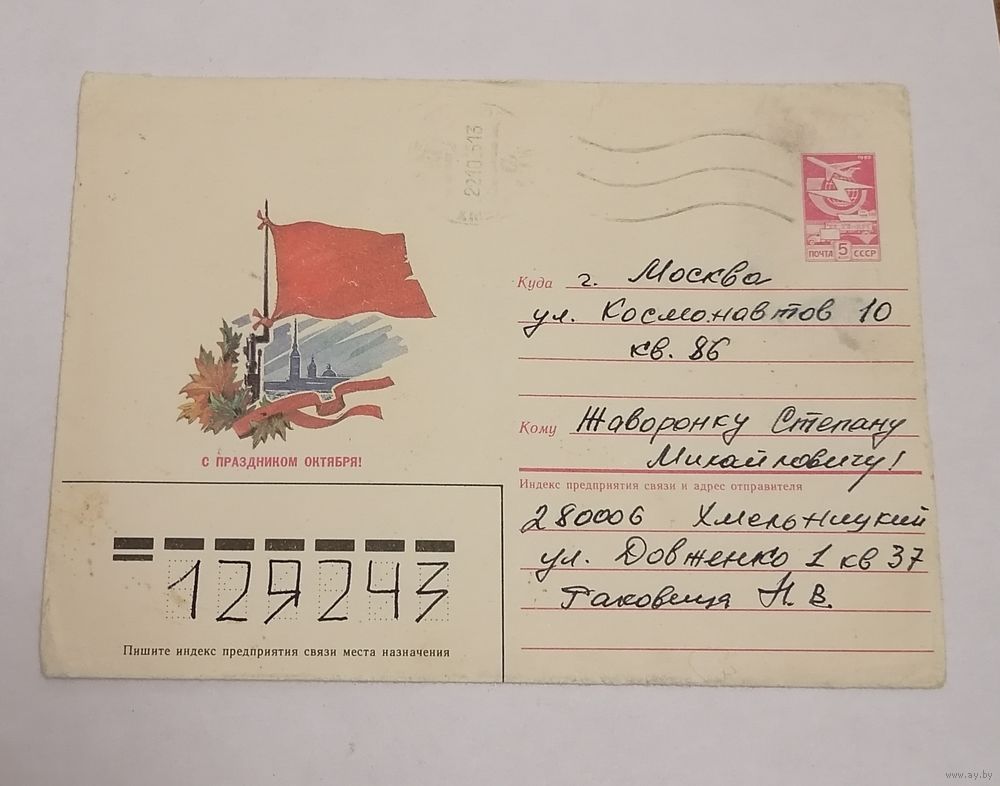 ПОЧТА 5 СССР
Куда г. Москва
ул. Космонавтов 10
кв. 86
Кому Жаворонку Степану
Михайловичу!
С ПРАЗДНИКОМ ОКТЯБРЯ!
Индекс предприятия связи и адрес отправителя
280006 Хмельницкий
ул. Довженко 1 кв 37
Н. В.
129243
Пишите индекс предприятия связи места назначения
www.ay.by